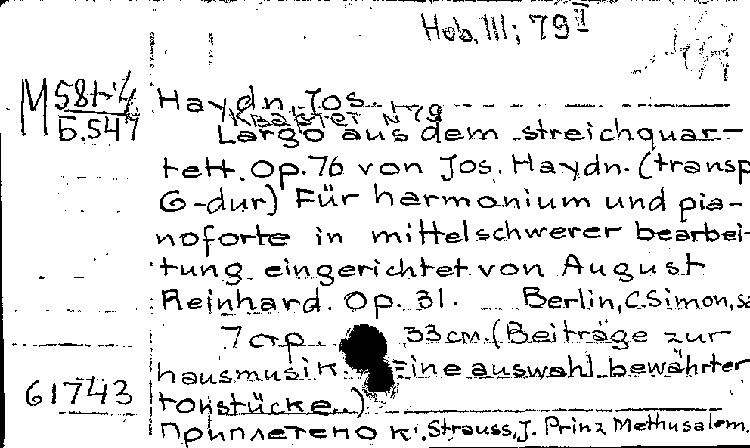 Hob. III; 79 II
M 581-4
Б.547
Haydn, Jos.
Квартет N 79
Largo aus dem streichquar-
tett. Op. 76 von Jos. Haydn. (transp
G-dur) Für harmonium und pia-
noforte in mittelschwerer bearbei-
tung eingerichtet von August
Reinhard. Op. 31. Berlin, C. Simon, s
7 стр. 33 cm. (Beiträge zur
hausmusik. Eine auswahl bewährter
61743
tonstücke..)
Приплетено к: Strauss, J. Prinz Methusalem.